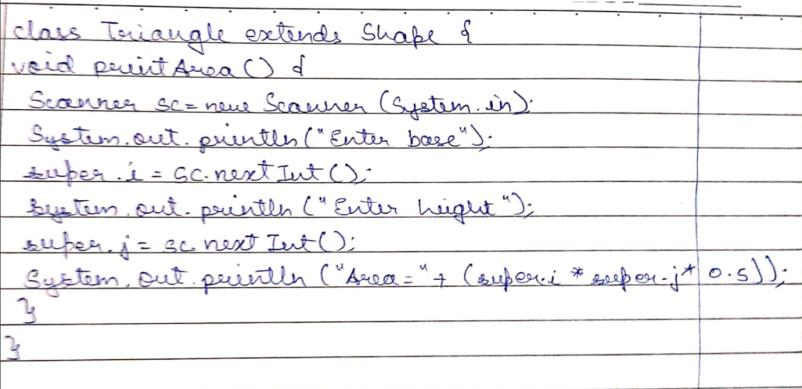 class Triangle extends Shape {
void printArea () {
Scanner sc = new Scanner (System.in);
System.out.println ("Enter base");
super.i = sc.nextInt ();
System.out.println ("Enter height");
super.j = sc.nextInt ();
System.out.println ("Area=" + (super.i * super.j * 0.5));
}
}